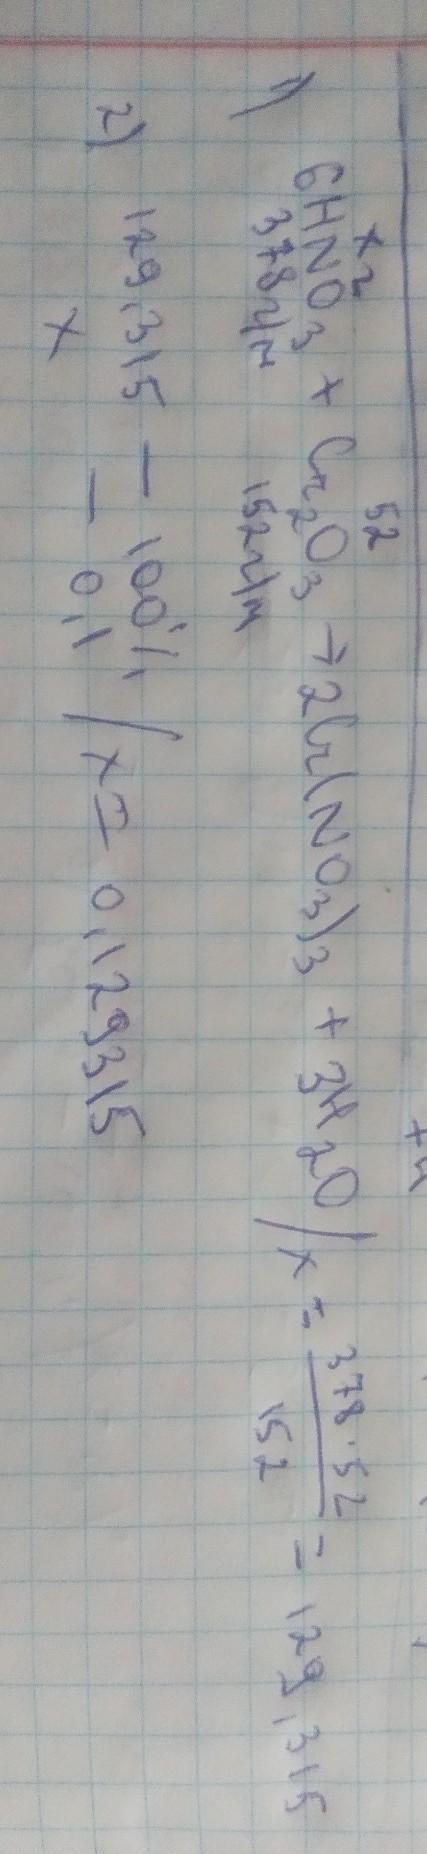 +4
x2 52
1) 6HNO3 + Cr2O3 → 2Cr(NO3)3 + 3H2O / x = 378·52 / 152 = 129,315
378 г/м 152 г/м
2) 129,315 — 100%
x — 0,1 / x = 0,129315